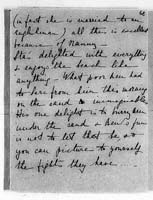 (in fact she is married to an
Englishman) all this is excellent
because of Nanny.
She delighted with everything
& enjoys the beach like
anything. What poor hen had
to hear from him the nursery
on the sand is unimaginable
Her one delight is to bury hen
under the sand & hen's fun
is not to let that be so
you can picture to yourself
the fights they have.